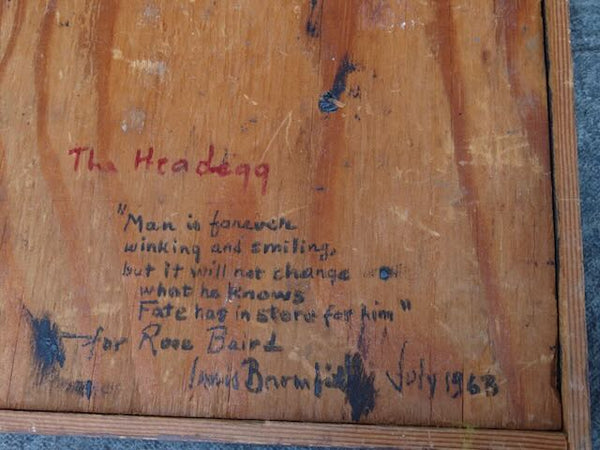 The Headegg
"Man is forever
winking and smiling,
but it will not change
what he knows
Fate has in store for him"
for Rose Baird
July 1963